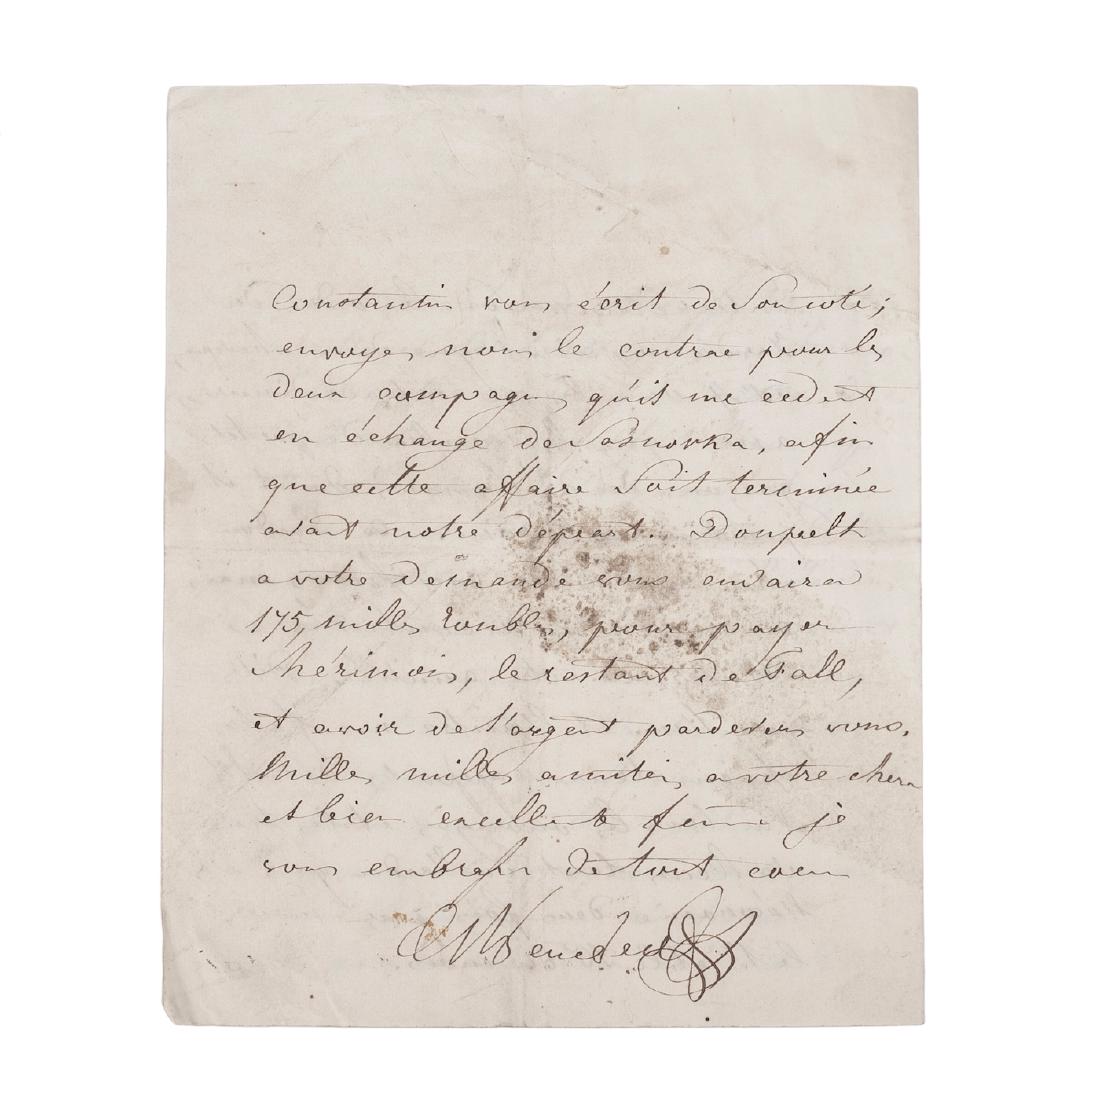 Constantin vous écrit de Son coté;
envoyes nous le contrac pour les
deux compagnes qu'ils me cèdent
en échange de Sosnovka, afin
que cette affaire Soit terminée
avant notre départ. Doupelt
a votre demande vous envaira
175, milles roubles, pour payer
le restant de Fall,
et avoir de l'argent pardever vous.
Milles milles amitiés a votre chere
et bien excellente femme je
vous embrasse de tout coeur